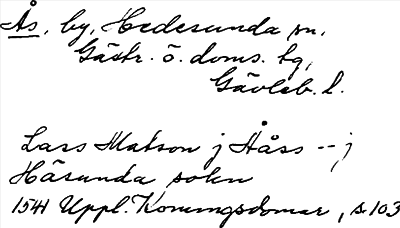 Ås, by, Hedesunda sn,
Gästr. ö. doms. tg,
Gävleb. l.
Lass Matson j Håss --j
Häsunda sokn
1541 Uppl. Konungsdomar, s. 103